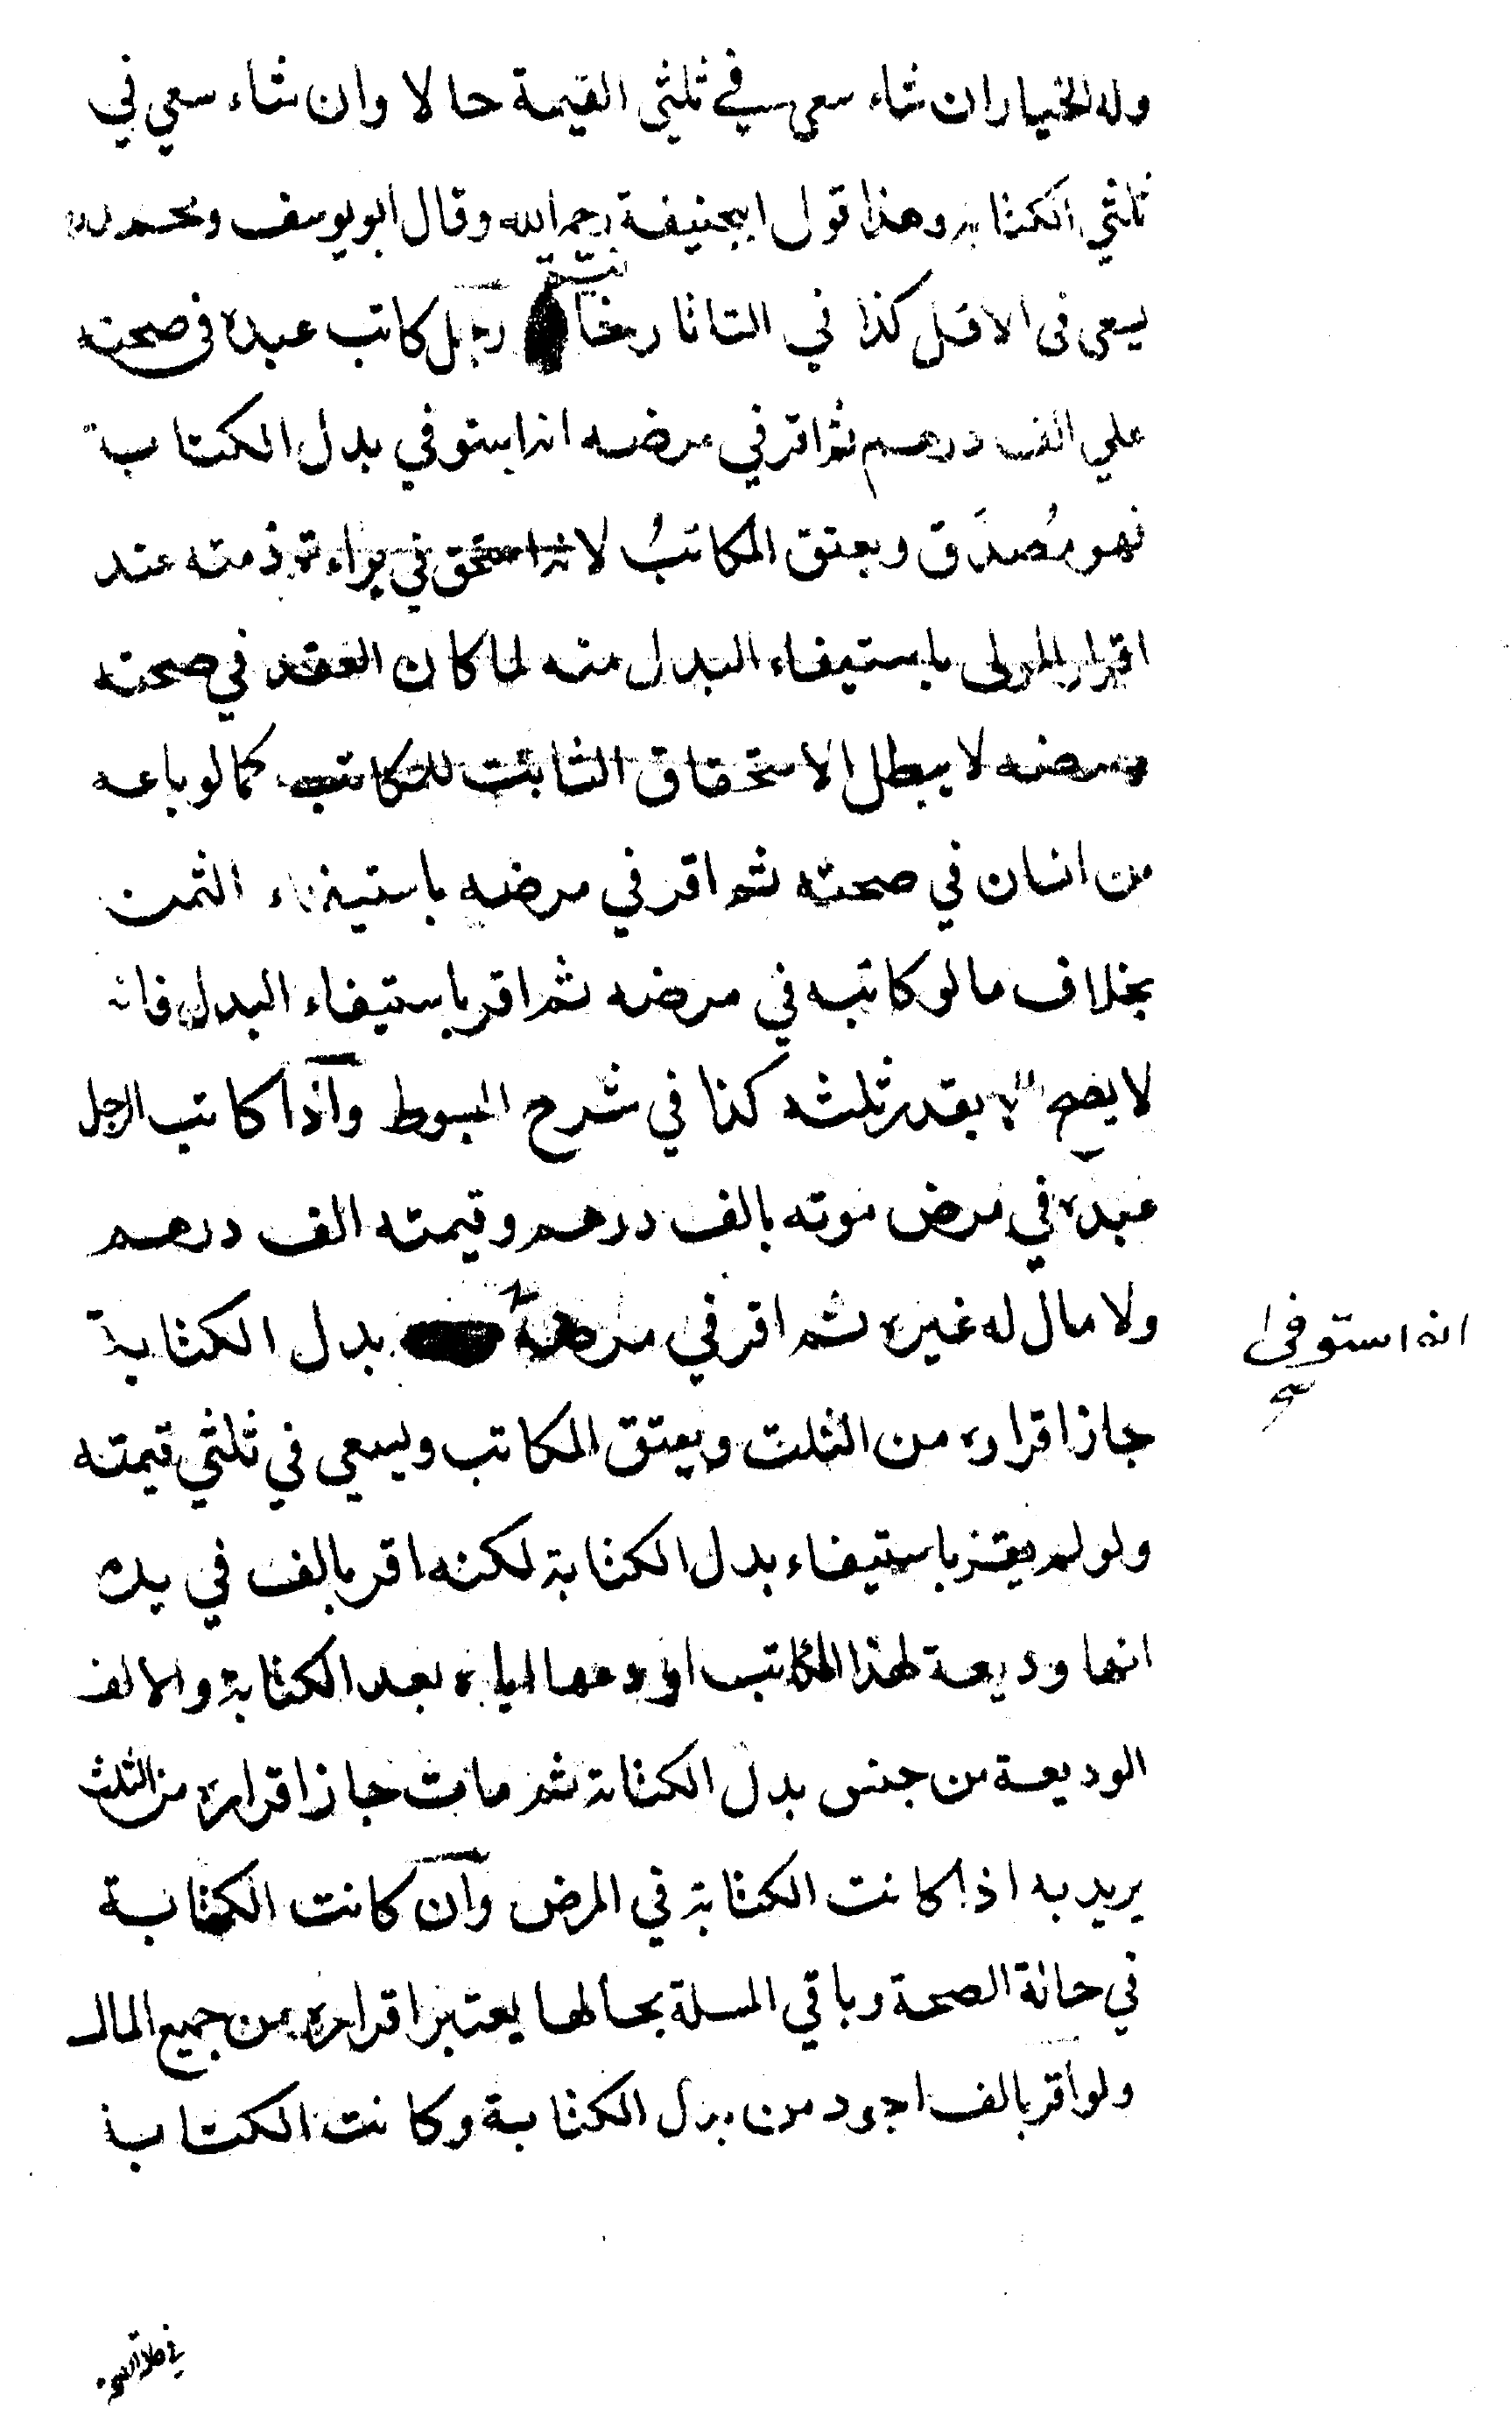 وله الخيار ان شاء سعى في ثلثي القيمة حالا وان شاء سعي في
ثلثي الكتابة وهذا قول ابيحنيفة رحمه الله وقال ابو يوسف ومحمد
يسعى فى الاقل كذا في التاتارخانية رجل كاتب عبده فى صحته
علي الف درهم ثم اقر في مرضه انه استوفي بدل الكتابة
فهو مُصدَق ويعتق المكاتبُ لانه استحق في براءة ذمته عند
اقرار المولى باستيفاء البدل منه لما كان العقد في صحته
ومرضه لا يبطل الاستحقاق الثابت للمكاتب كما لو باعه
من انسان في صحته ثم اقر في مرضه باستيفاء الثمن
بخلاف ما لو كاتبه في مرضه ثم اقر باستيفاء البدل فانه
لا يصح الا بقدر ثلثه كذا في شرح المبسوط وآذا كاتب الرجل
عبده في مرض موته بالف درهم وقيمته الف درهم
ولا مال له غيره ثم اقر في مرضه بدل الكتابة
انه استوفى
صح
جاز اقراره من الثلث ويعتق المكاتب ويسعي في ثلثي قيمته
ولو لم يقر باستيفاء بدل الكتابة لكنه اقر بالف في يده
انها وديعة لهذا المكاتب اودعها اياه بعد الكتابة والالف
الوديعة من جنس بدل الكتابة ثم مات جاز اقراره من الثلث
يريد به اذا كانت الكتابة في المرض وآن كانت الكتابة
في حالة الصحة وباقي المسلة بحالها يعتبر اقراره من جميع المال
ولو اقر بالف اجود من بدل الكتابة وكانت الكتابة